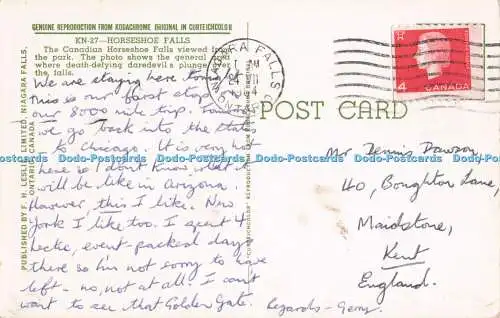 GENUINE REPRODUCTION FROM KODACHROME ORIGINAL IN CURTEICHCOLOR
KN-27—HORSESHOE FALLS
The Canadian Horseshoe Falls viewed from
the park. The photo shows the general
where death-defying daredevils plunge over
the falls.
We are staying here tonight
This is our first stop
our 8000 mile trip.
we go back into the States
to Chicago. It is very hot
here so I don't know what it
will be like in Arizona.
However, this I like. New
York I like too. I spent 4
hectic, event-packed days
there so I'm not sorry to have
left - no, not at all! I can't
want to see that Golden Gate.
Regards - Gerry.
PUBLISHED BY F. H. LESLIE LIMITED, NIAGARA FALLS,
ONTARIO, CANADA
NIAGARA FALLS
ONT
4
CANADA
POST CARD
Mr Dennis Dawson
40, Boughton Lane,
Maidstone,
Kent
England.
Dodo-Postcards Dodo-Postcards Dodo-Postcards Dodo-Postcards Dodo-Postcards Dodo-Postcards